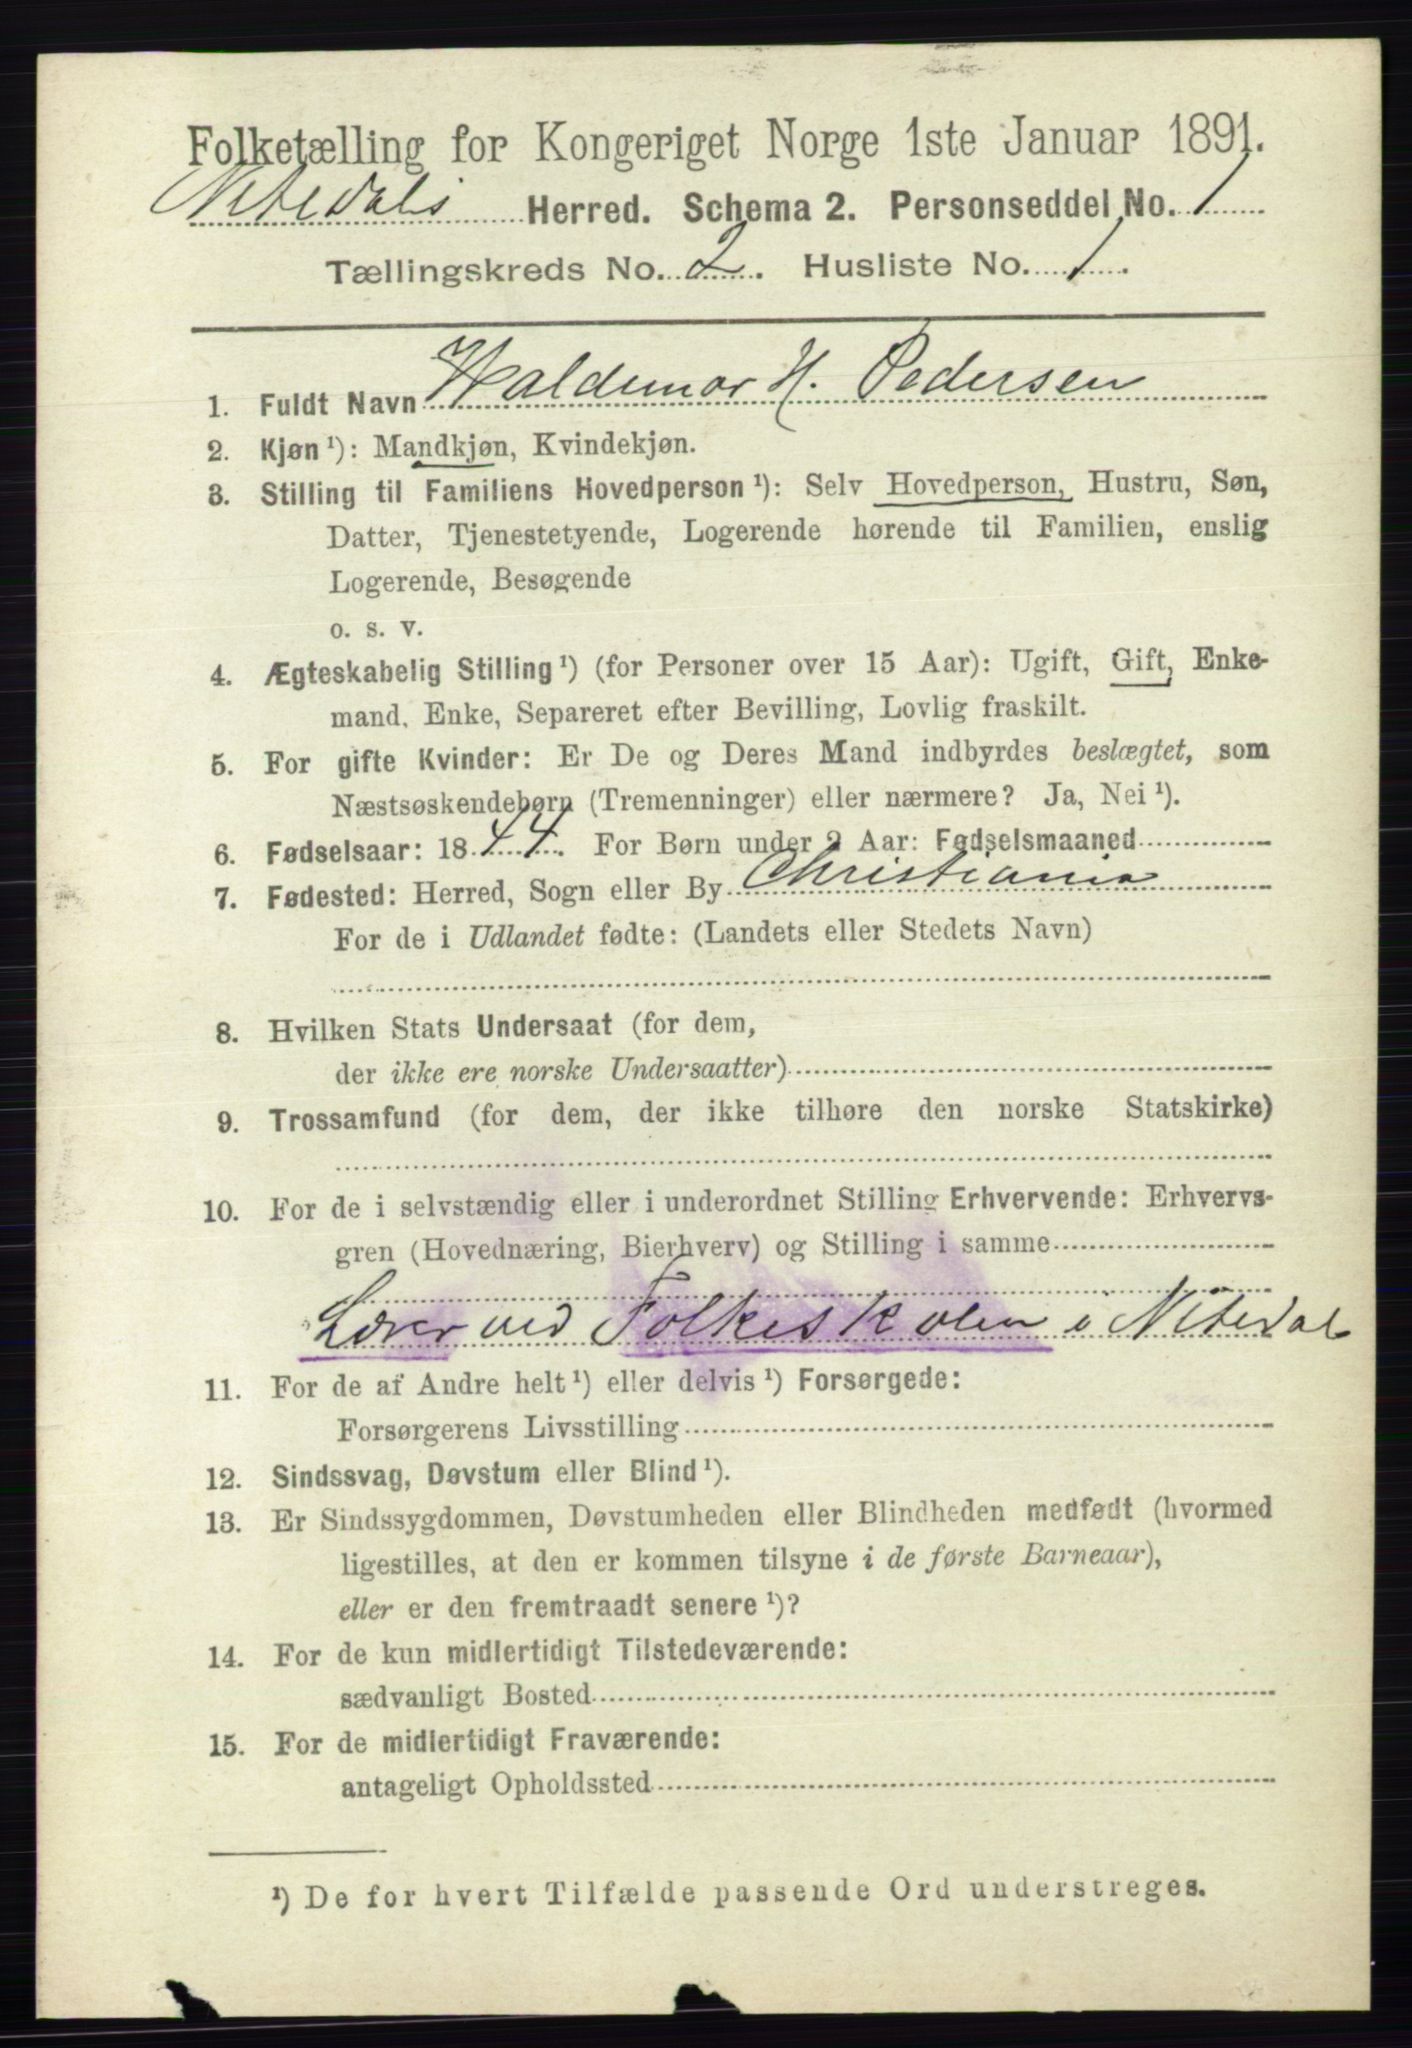 Folketælling for Kongeriget Norge 1ste Januar 1891.
Nitedals Herred. Schema 2. Personseddel No. 1
Tællingskreds No. 2. Husliste No. 1.
1. Fuldt Navn Waldemar H. Pedersen
2. Kjøn ¹): Mandkjøn, Kvindekjøn.
3. Stilling til Familiens Hovedperson ¹): Selv Hovedperson, Hustru, Søn,
Datter, Tjenestetyende, Logerende hørende til Familien, enslig
Logerende, Besøgende
o. s. v.
4. Ægteskabelig Stilling ¹) (for Personer over 15 Aar): Ugift, Gift, Enke-
mand, Enke, Separeret efter Bevilling, Lovlig fraskilt.
5. For gifte Kvinder: Er De og Deres Mand indbyrdes beslægtet, som
Næstsøskendebørn (Tremenninger) eller nærmere? Ja, Nei ¹).
6. Fødselsaar: 1844. For Børn under 2 Aar: Fødselsmaaned
7. Fødested: Herred, Sogn eller By Christiania
For de i Udlandet fødte: (Landets eller Stedets Navn)
8. Hvilken Stats Undersaat (for dem,
der ikke ere norske Undersaatter)
9. Trossamfund (for dem, der ikke tilhøre den norske Statskirke)
10. For de i selvstændig eller i underordnet Stilling Erhvervende: Erhvervs-
gren (Hovednæring, Bierhverv) og Stilling i samme
Lærer ved Folkeskolen i Nitedal
11. For de af Andre helt ¹) eller delvis ¹) Forsørgede:
Forsørgerens Livsstilling
12. Sindssvag, Døvstum eller Blind ¹).
13. Er Sindssygdommen, Døvstumheden eller Blindheden medfødt (hvormed
ligestilles, at den er kommen tilsyne i de første Barneaar),
eller er den fremtraadt senere ¹)?
14. For de kun midlertidigt Tilstedeværende:
sædvanligt Bosted
15. For de midlertidigt Fraværende:
antageligt Opholdssted
¹) De for hvert Tilfælde passende Ord understreges.